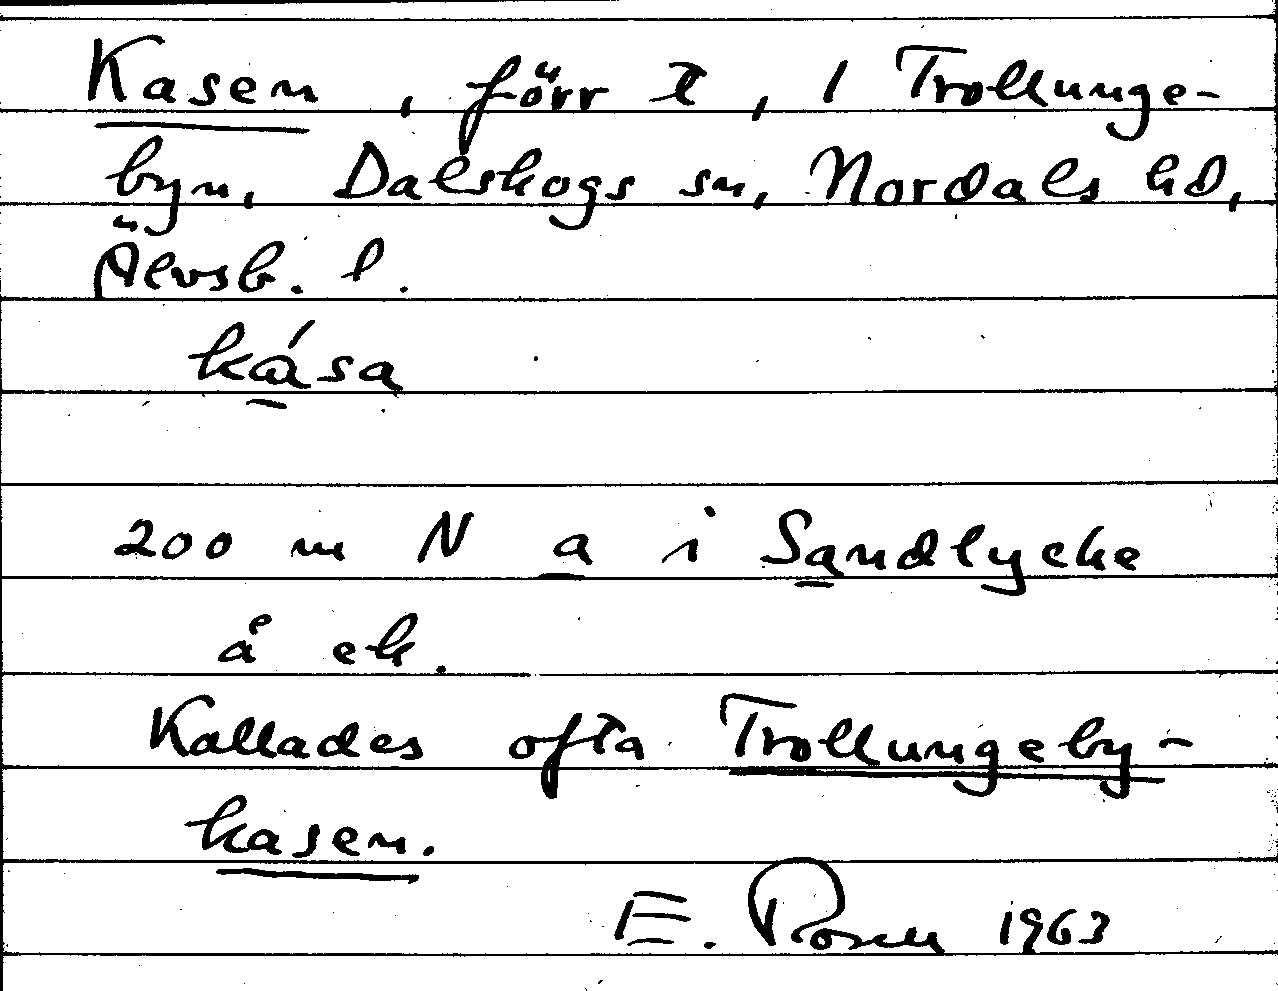 Kasen, förr t, i Trollunge-
byn, Dalskogs sn, Nordals hd,
Älvsb. l.
ká̱sa
200 m N a i Sandlycke
å ek.
Kallades ofta Trollungeby-
kasen.
E. Rosell 1963